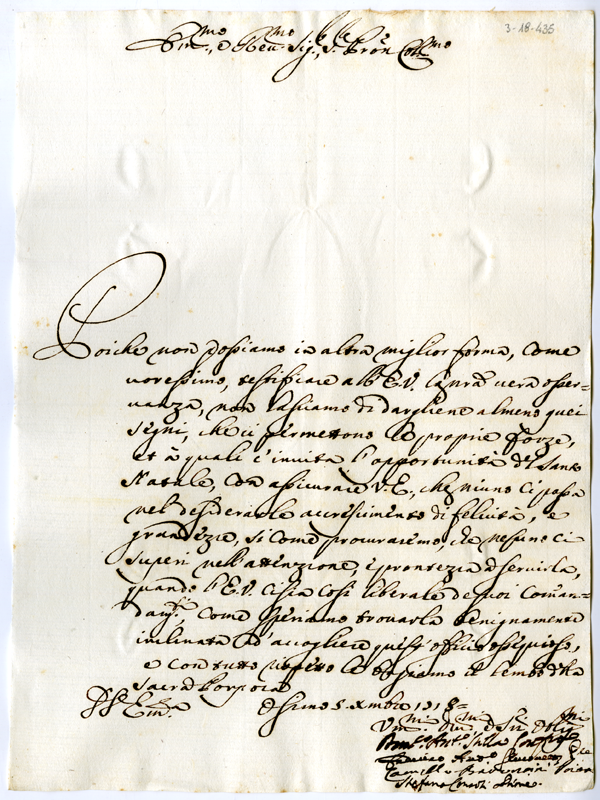 3-18-435
Em.mo, e Reu.mo Sig.r, e Pron Coll.mo
Poiche non possiamo in altra miglior forma, come
uoressimo, testificare all'E.V. la nrã uera osser=
uanza, non lasciamo di dargliene almeno quei
segni, che ci permettono le proprie forze,
et à quali c'inuita l'opportunità del Santo
Natale, con assicurare V.E., che niuno ci passa
nel desiderarle accrescimento di felicità, e
grandezze, si come procuraremo, che nessuno ci
superi nell'attenzione, e prontezza di seruirla,
quando l'E.V. ci sia così liberale de suoi Coman=
dam.ti, come speriamo trouarla benignamente
inclinata ad accogliere questi officii ossequiosi,
e con tutto rispetto le bagiamo il lembo della
Sacra Porpora
D. V. Em.za Osimo 5. Xmbre 1718=
V.mi Diu.mi et Oblig.mi
Ant.o
Camillo
Stefano